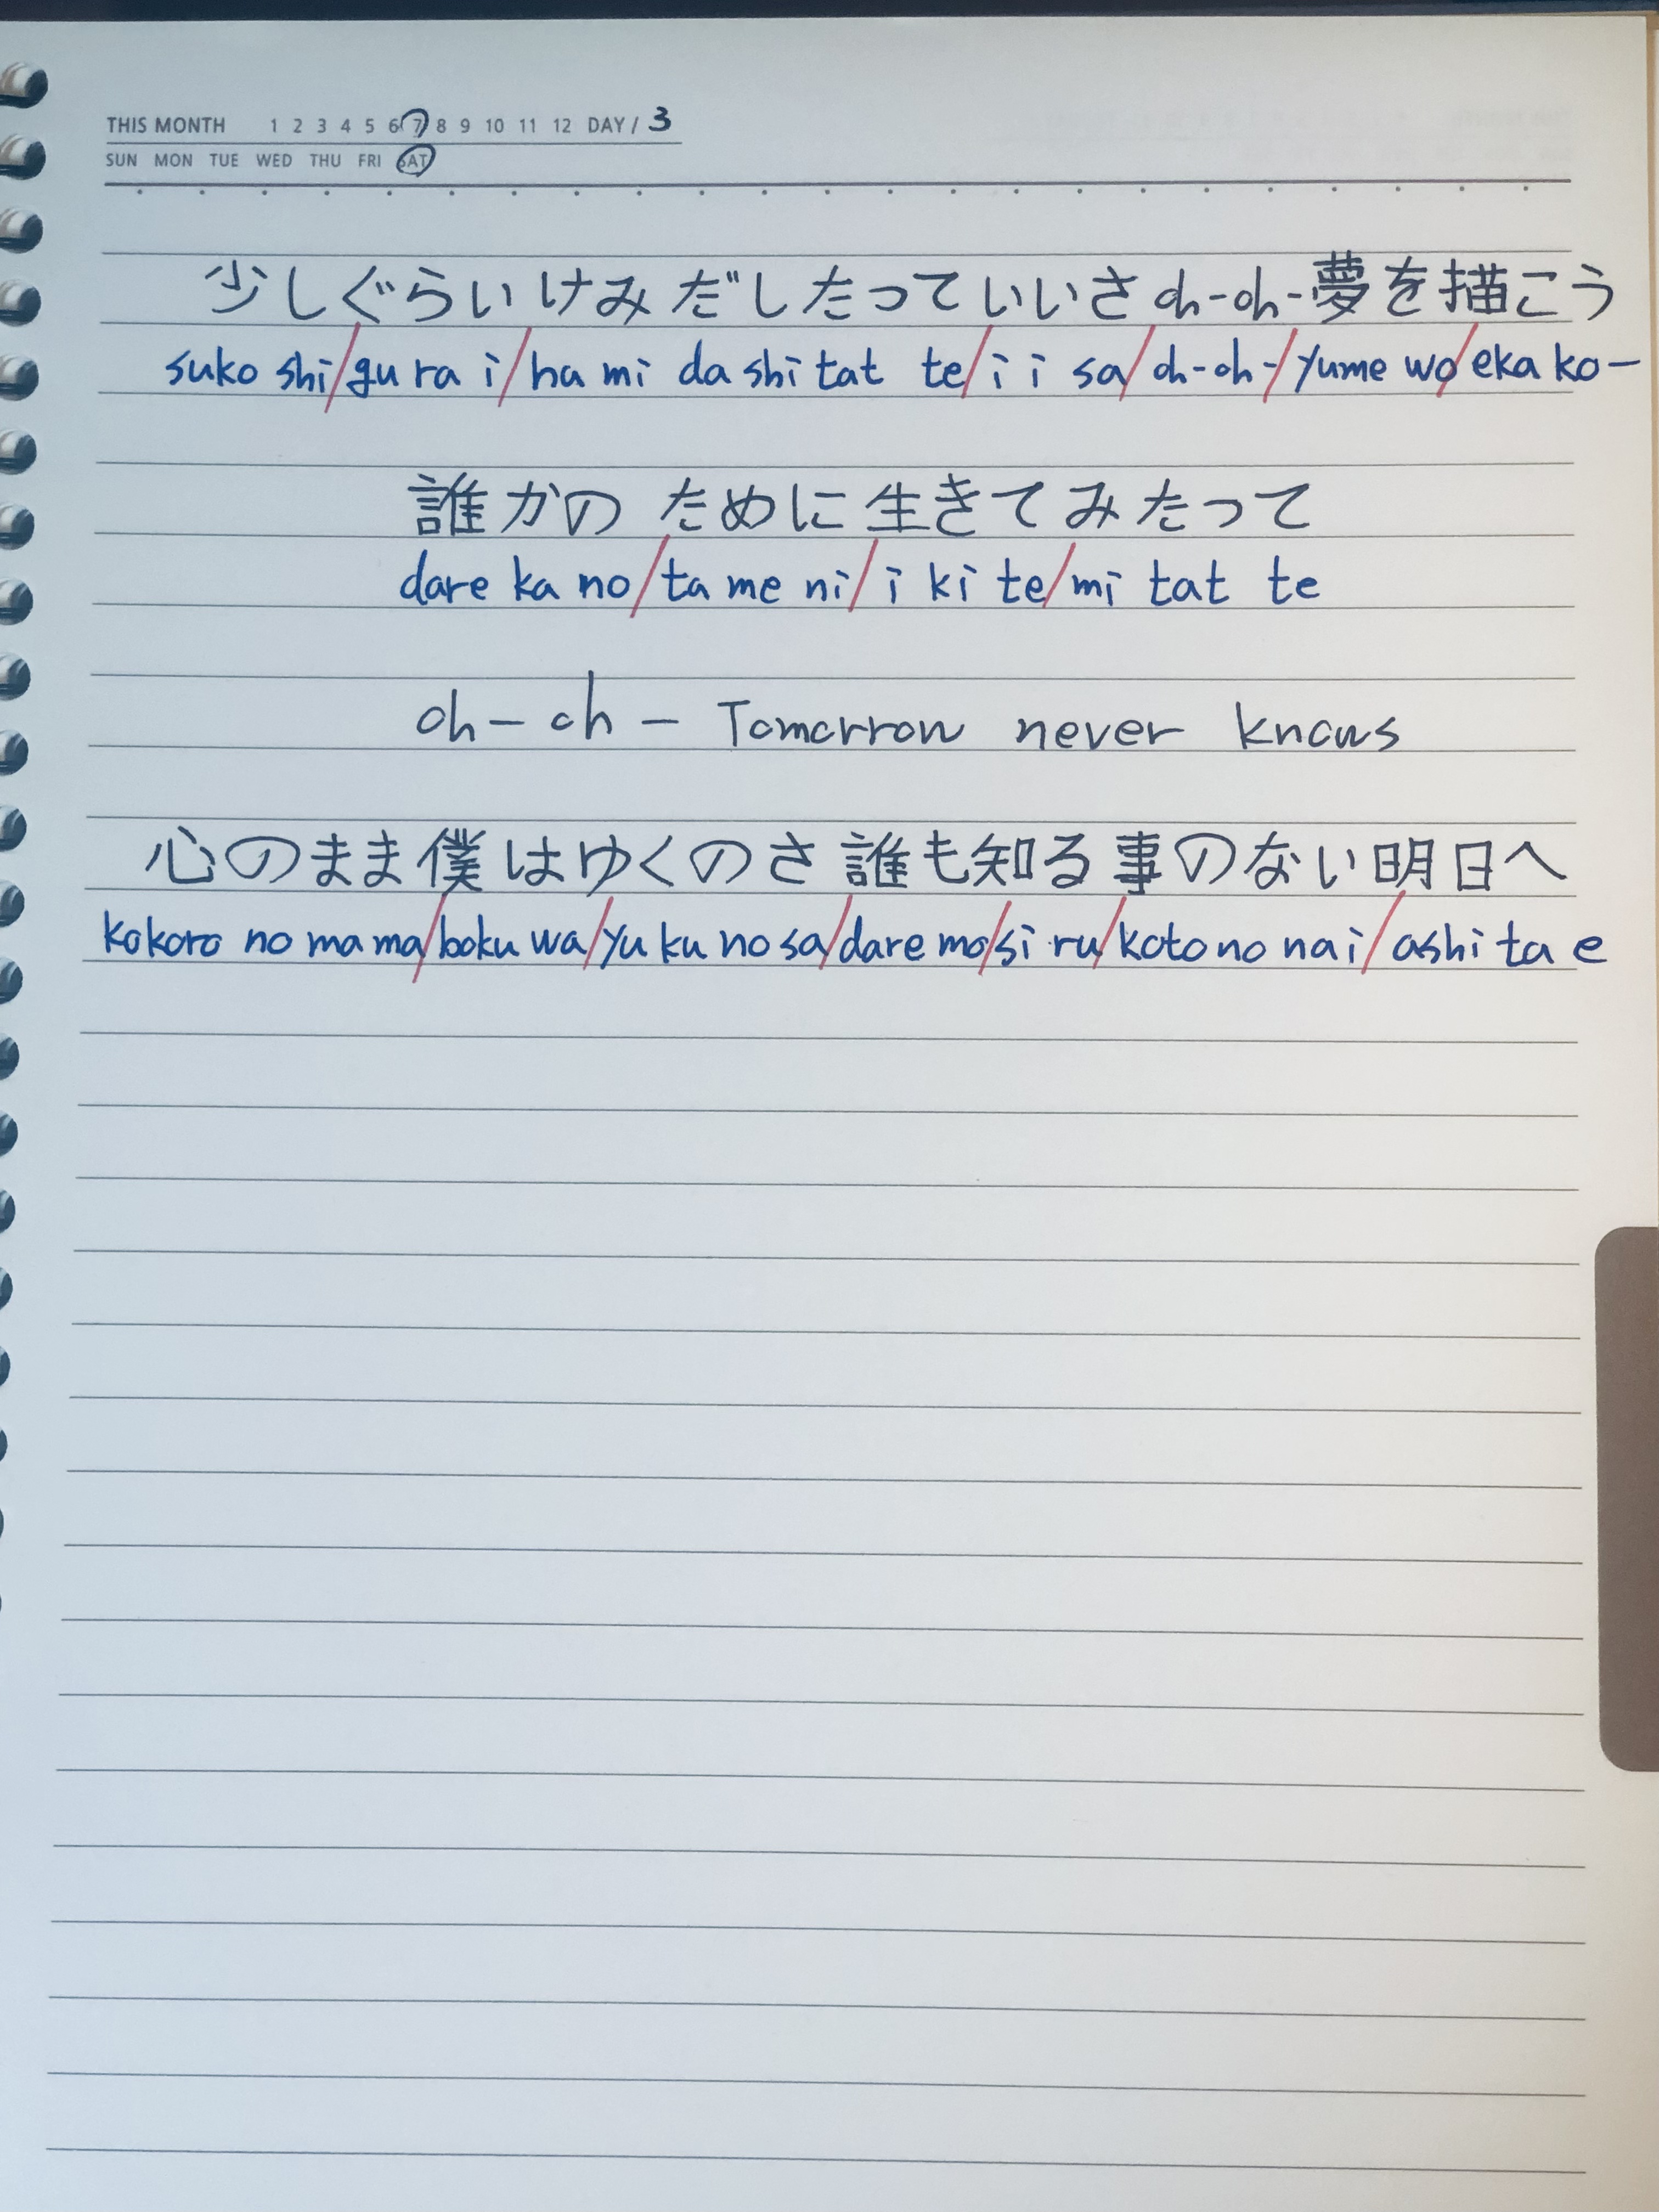 THIS MONTH 1 2 3 4 5 6 7 8 9 10 11 12 DAY / 3
SUN MON TUE WED THU FRI SAT
少しぐらいけみだしたっていいさ oh-oh-夢を描こう
suko shi/gu ra i/ha mi da shi tat te/i i sa/oh-oh-/yume wo/eka ko-
誰かのために生きてみたって
dare ka no/ta me ni/i ki te/mi tat te
oh-oh- Tomorrow never knows
心のまま僕はゆくのさ 誰も知る事のない明日へ
kokoro no ma ma/boku wa/yu ku no sa/dare mo/si ru/koto no na i/ashi ta e